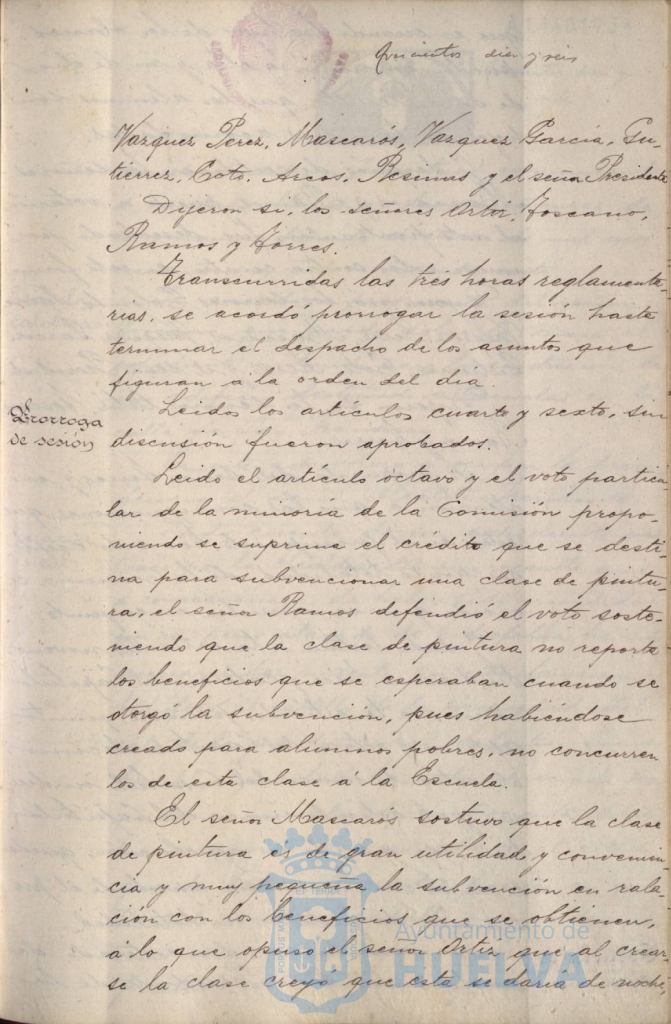 Quinientos diez y seis
Vazquez Perez, Mascarós, Vazquez García, Gu-
tierrez, Coto, Arcos, Resinas y el señor Presidente
Dijeron si, los señores Ortiz, Toscano,
Ramos y Torres.
Transcurridas las tres horas reglamenta-
rias, se acordó prorrogar la sesión hasta
terminar el despacho de los asuntos que
figuran á la orden del dia.
Prorroga
de sesión
Leidos los artículos cuarto y sexto, sin
discusión fueron aprobados.
Leido el artículo octavo y el voto particu-
lar de la minoría de la Comisión propo-
niendo se suprima el crédito que se desti-
na para subvencionar una clase de pintu-
ra, el señor Ramos defendió el voto soste-
niendo que la clase de pintura no reporta
los beneficios que se esperaban cuando se
otorgó la subvención, pues habiéndose
creado para alumnos pobres, no concurren
los de esta clase á la Escuela.
El señor Mascarós sostuvo que la clase
de pintura es de gran utilidad y convenien-
cia y muy pequeña la subvención en rala-
ción con los beneficios que se obtienen,
á lo que opuso el señor Ortiz que al crear-
se la clase creyó que esta se daría de noche,
Ayuntamiento de
HUELVA